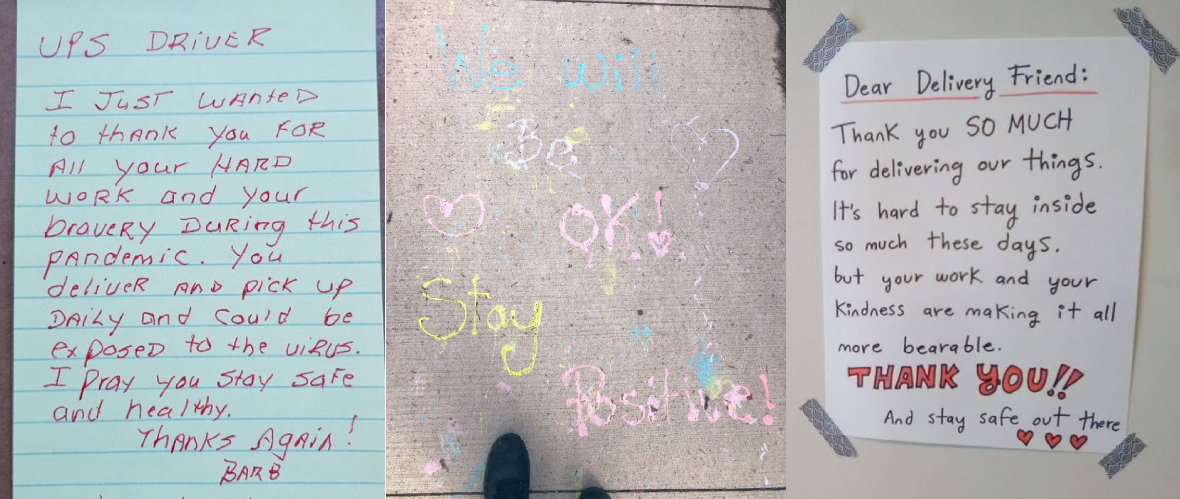 UPS DRIVER
I JUST WANTED
to thank you FOR
All your HARD
WORK and your
bravery During this
pandemic. You
deliver AND pick up
DAILY and could be
exposed to the virus.
I pray you stay safe
and healthy.
Thanks Again!
BARB
We will
Be
OK!
Stay
Positive!
Dear Delivery Friend:
Thank you SO MUCH
for delivering our things.
It's hard to stay inside
so much these days.
but your work and your
Kindness are making it all
more bearable.
THANK YOU!!
And stay safe out there